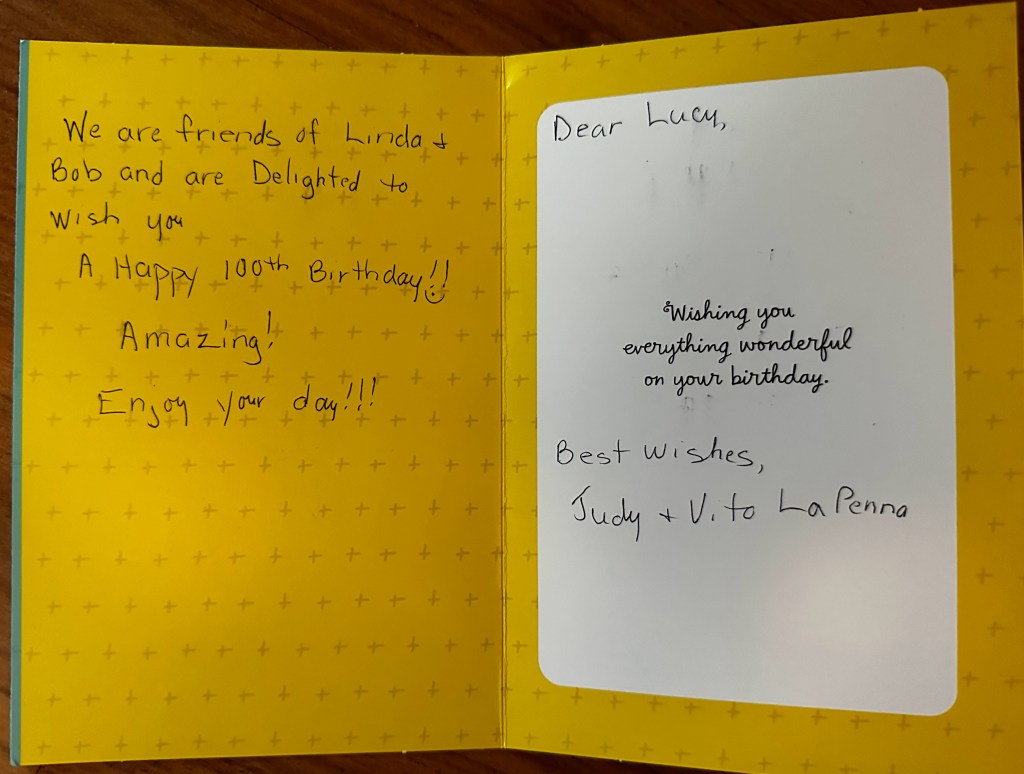 We are friends of Linda +
Bob and are Delighted to
Wish you
A Happy 100th Birthday!!
Amazing!
Enjoy your day!!!
Dear Lucy,
Wishing you
everything wonderful
on your birthday.
Best Wishes,
Judy + Vito LaPenna